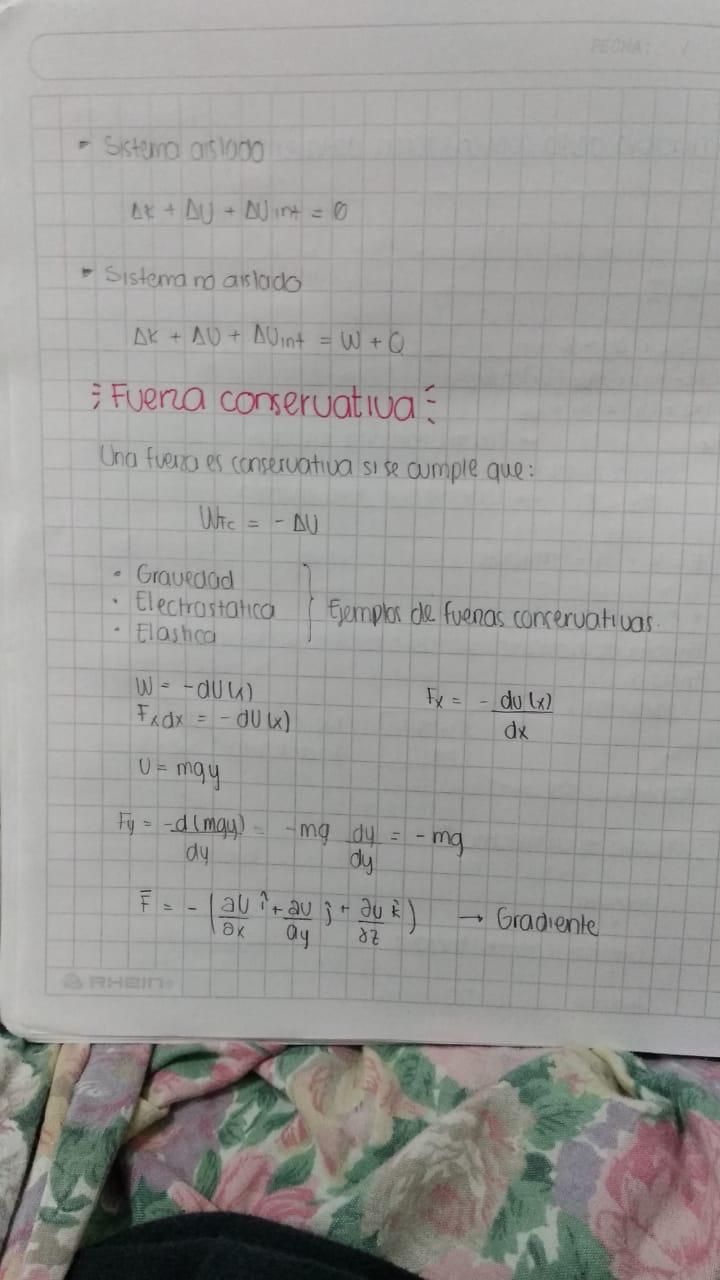 FECHA: /
- Sistema aislado
ΔK + ΔU + ΔU int = 0
- Sistema no aislado
ΔK + ΔU + ΔUint = W + Q
Fuerza conservativa
Una fuerza es conservativa si se cumple que:
WFc = - ΔU
• Gravedad
• Electrostatica } Ejemplos de fuerzas conservativas.
• Elastica
W = -dU(x) Fx = - dU(x)/dx
Fxdx = - dU(x)
U = mgy
Fy = -d(mgy)/dy = -mg dy/dy = - mg
F̄ = - (∂U/∂x î + ∂U/∂y ĵ + ∂U/∂z k̂) → Gradiente
RHEIN